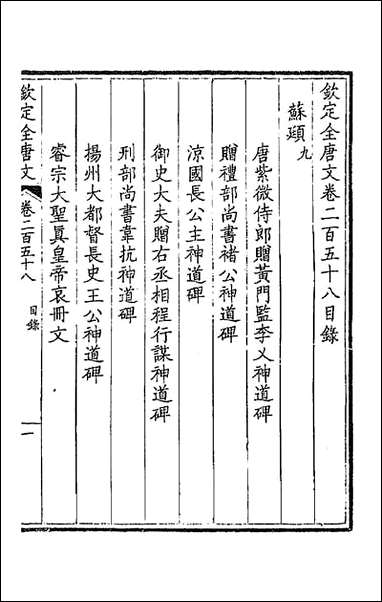 欽定全唐文卷二百五十八目錄
蘇頲九
唐紫微侍郎贈黃門監李乂神道碑
贈禮部尚書褚公神道碑
涼國長公主神道碑
御史大夫贈右丞相程行謀神道碑
刑部尚書韋抗神道碑
揚州大都督長史王公神道碑
睿宗大聖眞皇帝哀冊文
欽定全唐文
卷二百五十八
目錄
一